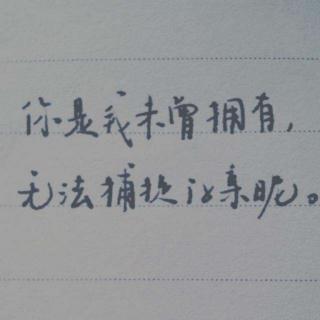 你是我未曾拥有,
无法捕捉的亲昵。